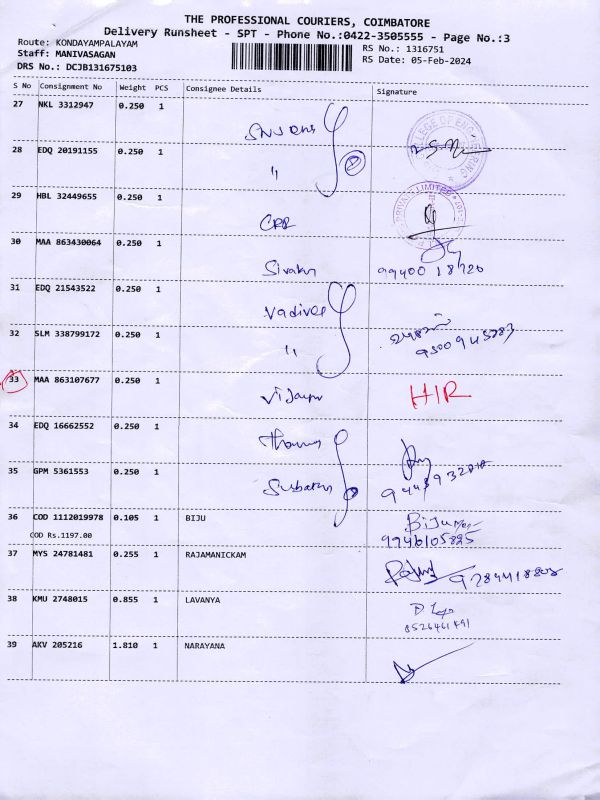 THE PROFESSIONAL COURIERS, COIMBATORE
Delivery Runsheet - SPT - Phone No.:0422-3505555 - Page No.:3
Route: KONDAYAMPALAYAM RS No.: 1316751
Staff: MANIVASAGAN RS Date: 05-Feb-2024
DRS No.: DCJB131675103
S No Consignment No Weight PCS Consignee Details Signature
27 NKL 3312947 0.250 1
COLLEGE OF ENGINEERING
28 EDQ 20191155 0.250 1
"
29 HBL 32449655 0.250 1
PRIVATE LIMITED
30 MAA 863430064 0.250 1
99400 18720
31 EDQ 21543522 0.250 1
Vadivel
32 SLM 338799172 0.250 1
" 9500945283
33 MAA 863107677 0.250 1
H/R
34 EDQ 16662552 0.250 1
35 GPM 5361553 0.250 1
36 COD 1112019978 0.105 1 BIJU Biju
COD Rs.1197.00 9946105825
37 MYS 24781481 0.255 1 RAJAMANICKAM
38 KMU 2748015 0.855 1 LAVANYA
8526461491
39 AKV 205216 1.810 1 NARAYANA